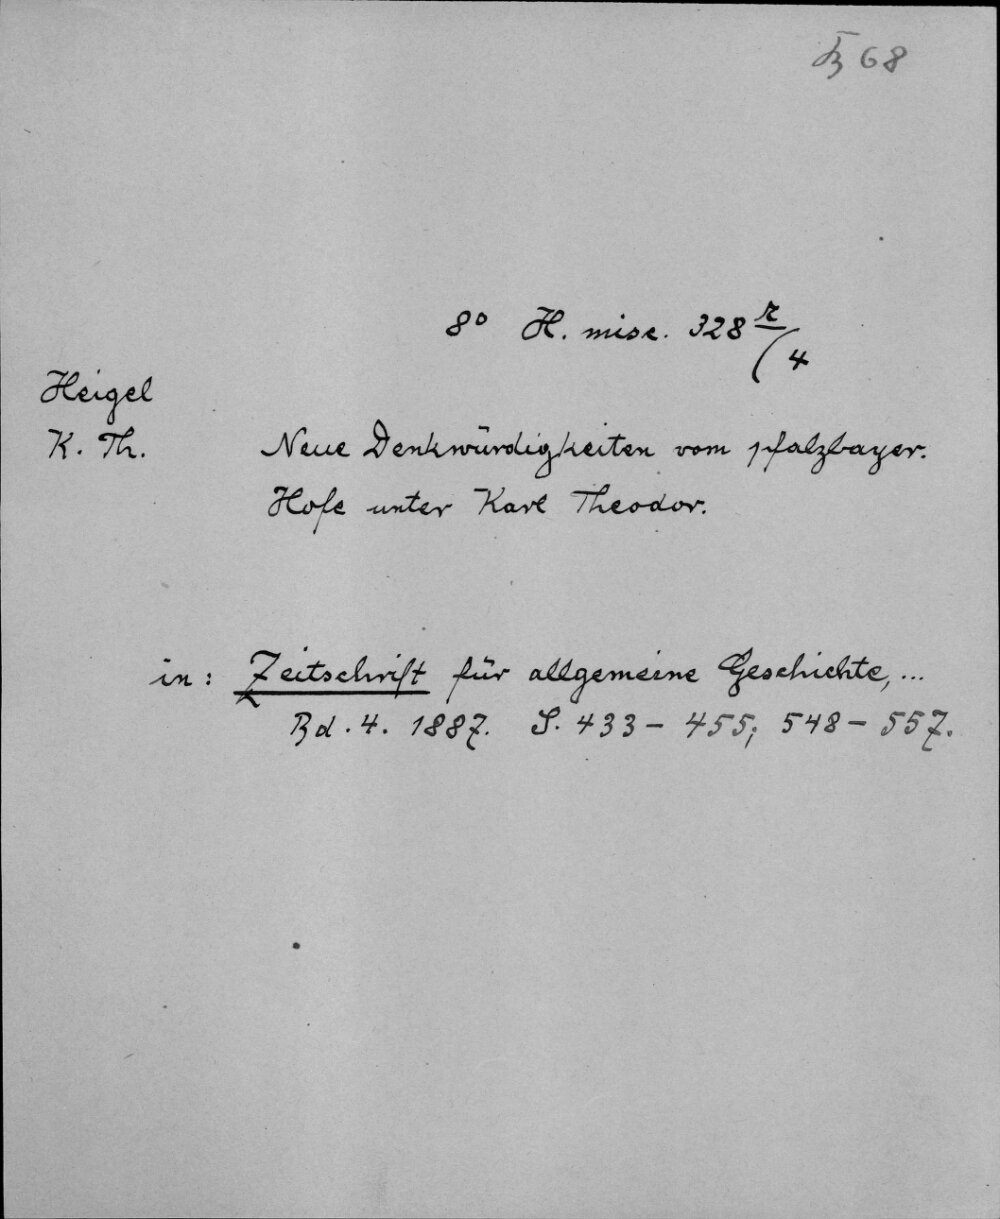 68
8° H. misc. 328 r/4
Heigel
K. Th. Neue Denkwürdigkeiten vom pfalzbayer.
Hofe unter Karl Theodor.
in: Zeitschrift für allgemeine Geschichte, ...
Bd. 4. 1887. S. 433 - 455; 548 - 557.